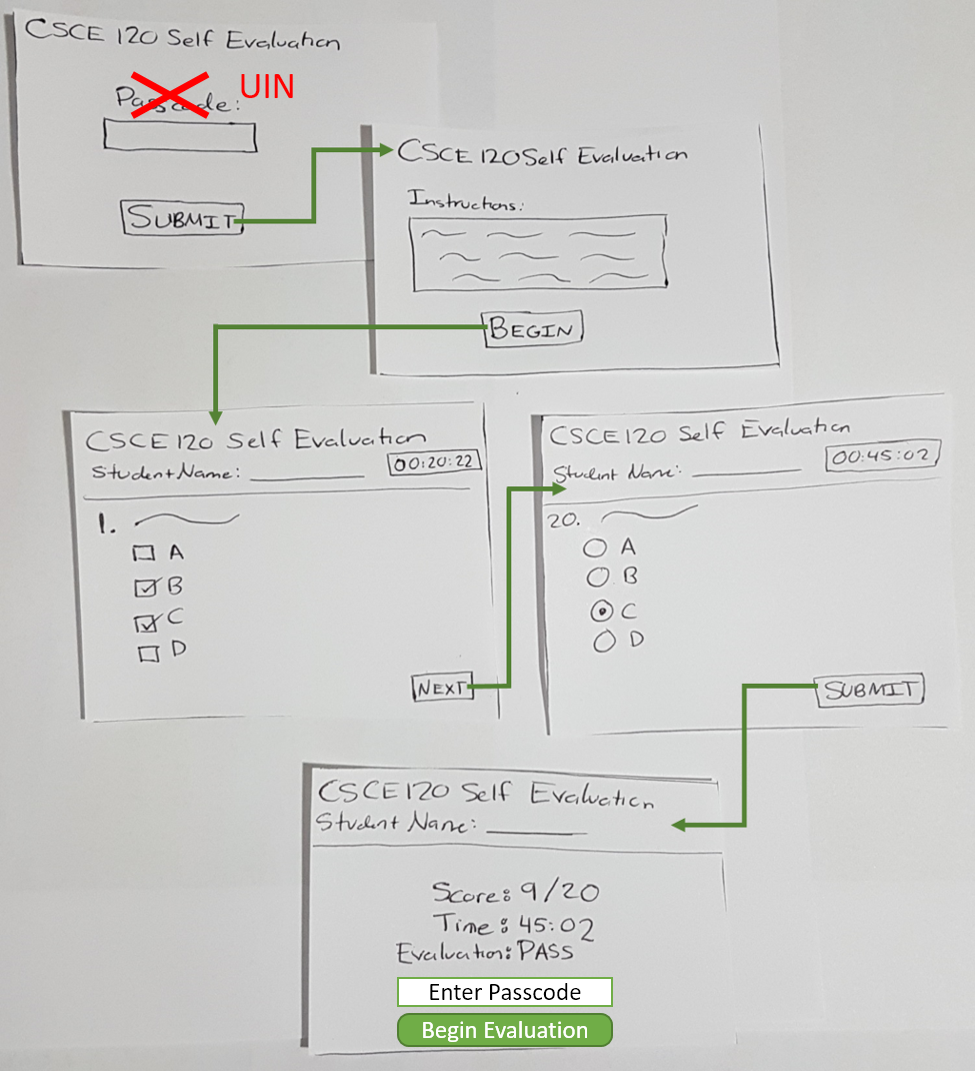 CSCE 120 Self Evaluation
Passcode: UIN
SUBMIT
CSCE 120 Self Evaluation
Instructions:
BEGIN
CSCE 120 Self Evaluation
Student Name: 00:20:22
1.
A
B
C
D
NEXT
CSCE 120 Self Evaluation
Student Name: 00:45:02
20.
A
B
C
D
SUBMIT
CSCE 120 Self Evaluation
Student Name:
Score: 9/20
Time: 45:02
Evaluation: PASS
Enter Passcode
Begin Evaluation